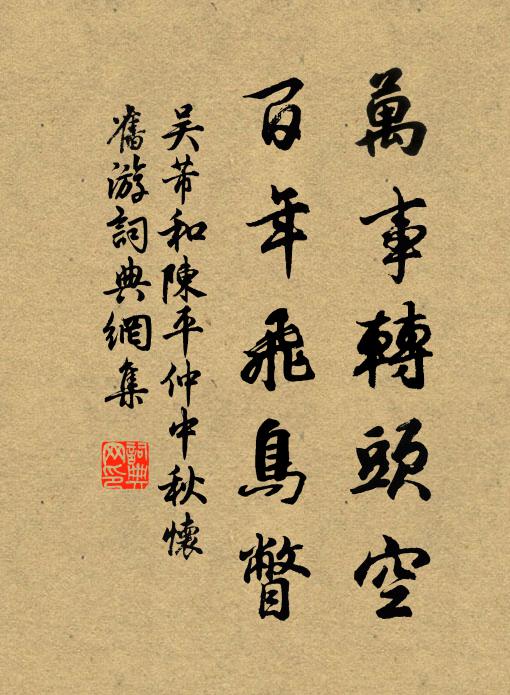 萬事轉頭空
百年飛鳥瞥
吴芾和陳平仲中秋懷
舊游詞典網集
詞典网印